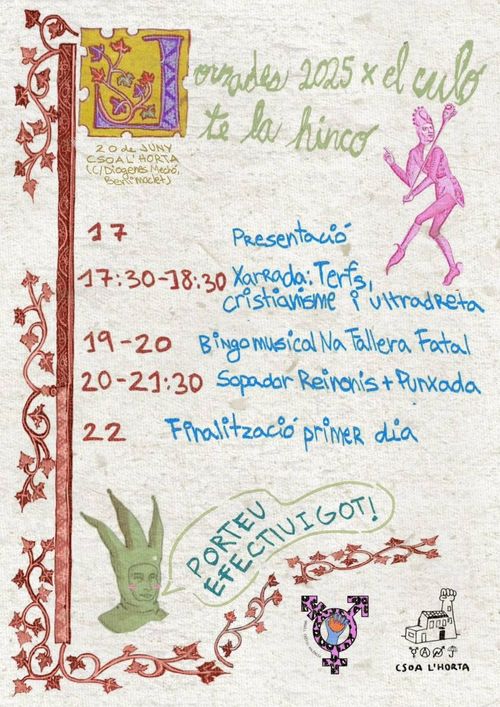 Jornades 2025 x el culo
te la hinco
20 de JUNY
CSOA L'HORTA
(C/Diògenes
Benimaclet)
17 Presentació
17:30-18:30 Xarrada: Terfs,
cristianisme i ultradreta
19-20 Bingo musical Na Fallera Fatal
20-21:30 Sopador Reinonis + Punxada
22 Finalització primer dia
PORTEU
EFECTIU I GOT!
CSOA L'HORTA